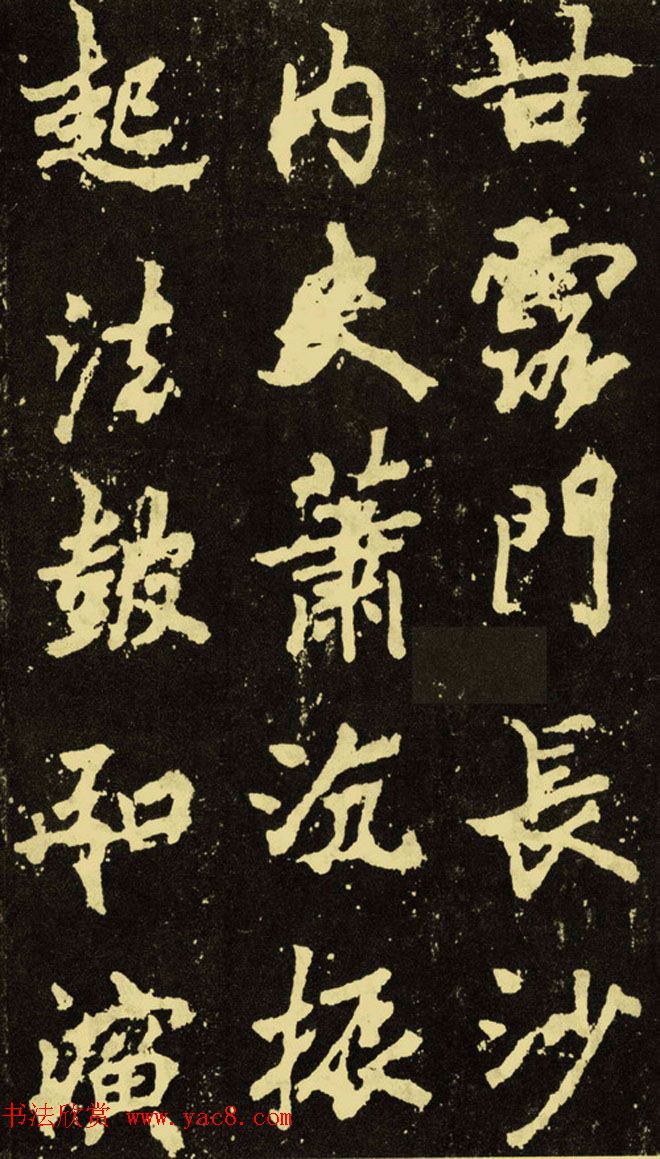 甘露門長沙
内史蕭沆振
起法鼓和演
书法欣赏 www.yac8.com